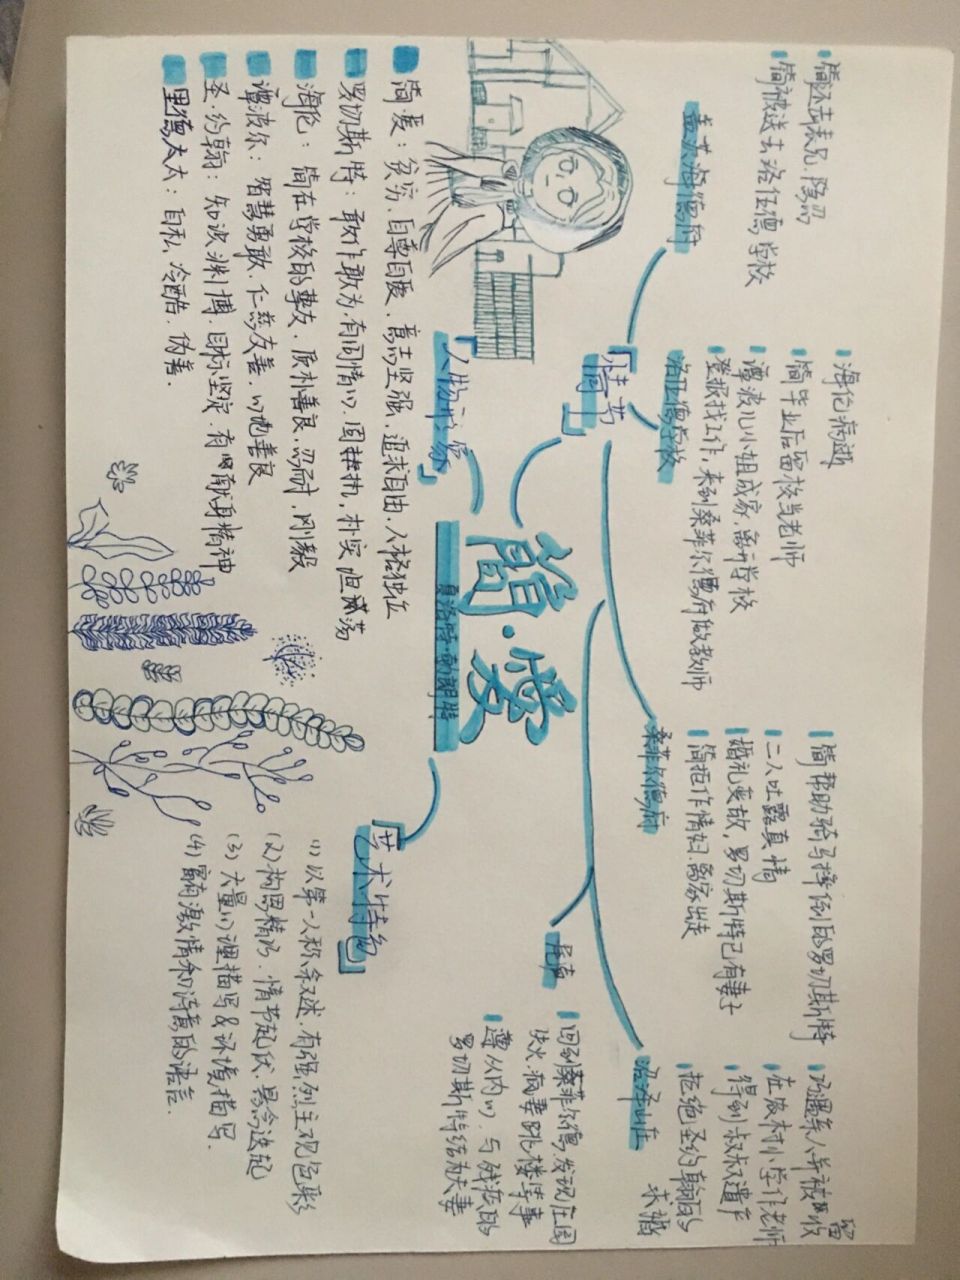 簡·愛
夏洛特·勃朗特
情节
盖茨海德府
简还击表兄.隐忍
简被送去洛伍德学校
洛伍德学校
海伦病逝
简毕业后留校当老师
谭波儿小姐成家,离开学校
登报找工作,来到桑菲尔德府做教师
桑菲尔德府
简帮助骑马摔倒的罗切斯特
二人吐露真情
婚礼变故,罗切斯特已有妻子
简拒作情妇.离家出走
沼泽山庄
巧遇亲人并被收留
在农村小学作老师
得到叔叔遗产
拒绝圣约翰的求婚
尾声
回到桑菲尔德,发现庄园
失火.病妻跳楼等事
遵从内心.与残疾的
罗切斯特结为夫妻
人物形象
简爱:贫穷.自尊自爱、意志坚强、追求自由、人格独立
罗切斯特:敢作敢为.有同情心.固执,朴实但
海伦:简在学校的挚友、质朴善良、忍耐,刚毅
谭波尔:智慧勇敢.仁慈友善.心地善良
圣·约翰:知识渊博.目标坚定.有献身精神
里德太太:自私、冷酷、伪善.
艺术特色
(1)以第一人称叙述.有强烈主观色彩
(2)构思精巧、情节起伏.悬念迭起
(3)大量心理描写&环境描写.
(4)富有激情和诗意的语言.